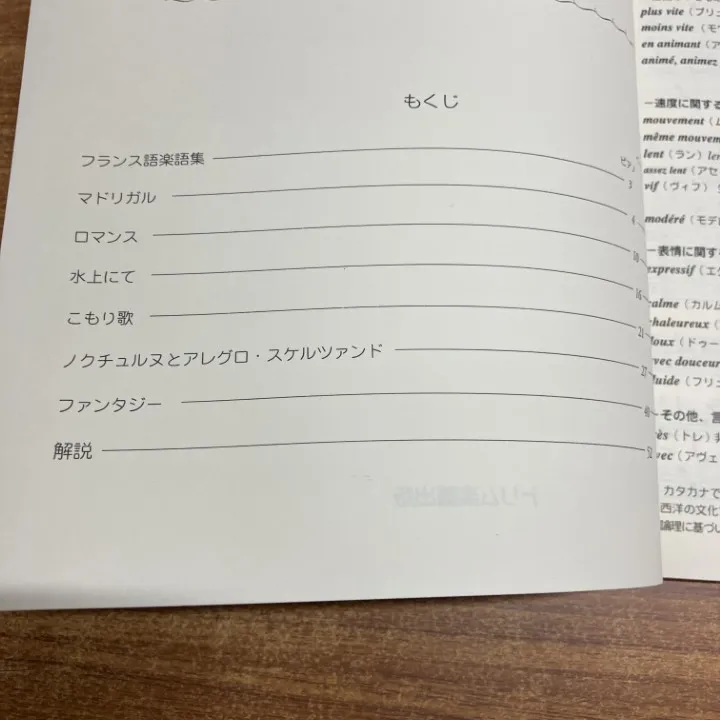 もくじ
フランス語楽語集 3
マドリガル 4
ロマンス 10
水上にて 16
こもり歌 21
ノクチュルヌとアレグロ・スケルツァンド 27
ファンタジー 40
解説 52
plus vite
moins vite
en animant
animé, animez
－速度に関する
mouvement
même mouvem
lent（ラン）
assez lent（アセ
vif（ヴィフ）
modéré（モデ
－表情に関する
expressif（エク
calme（カルム
chaleureux
doux（ドゥー
avec douceur
fluide（フリュ
－その他、
très（トレ）非
avec（アヴェ
カタカナで
西洋の文化
論理に基づい